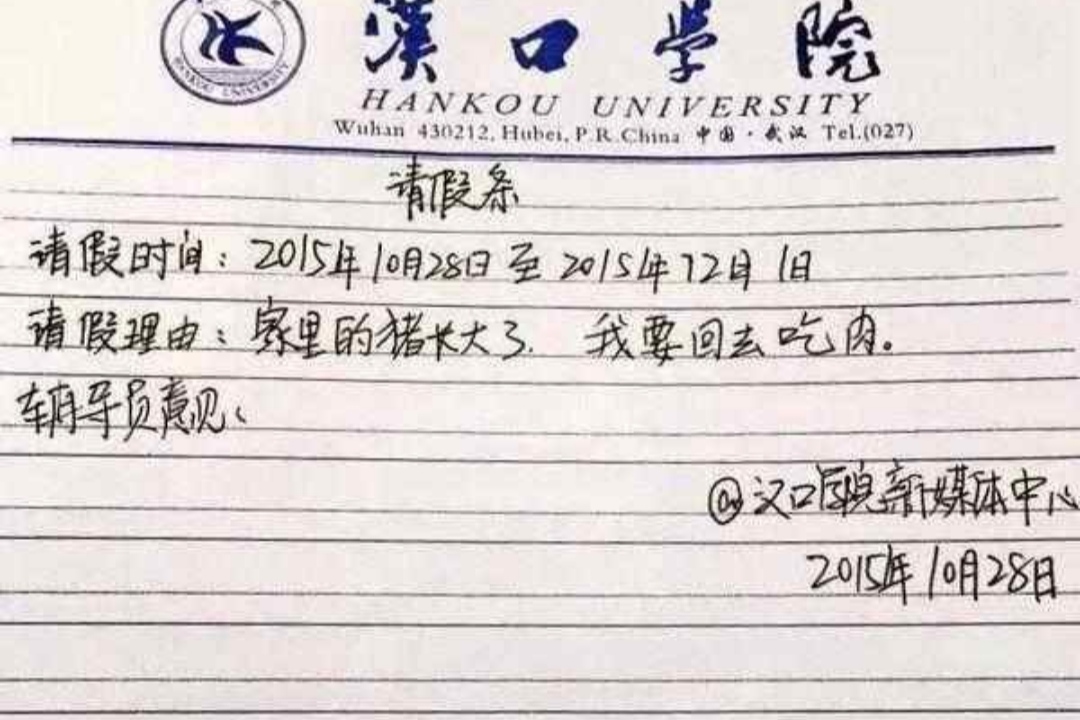 漢口学院
HANKOU UNIVERSITY
Wuhan 430212, Hubei, P.R.China 中国·武汉 Tel.(027)
HANKOU UNIVERSITY
请假条
请假时间：2015年10月28日至2015年12月1日
请假理由：家里的猪长大了. 我要回去吃肉。
辅导员意见：
@汉口学院新媒体中心
2015年10月28日